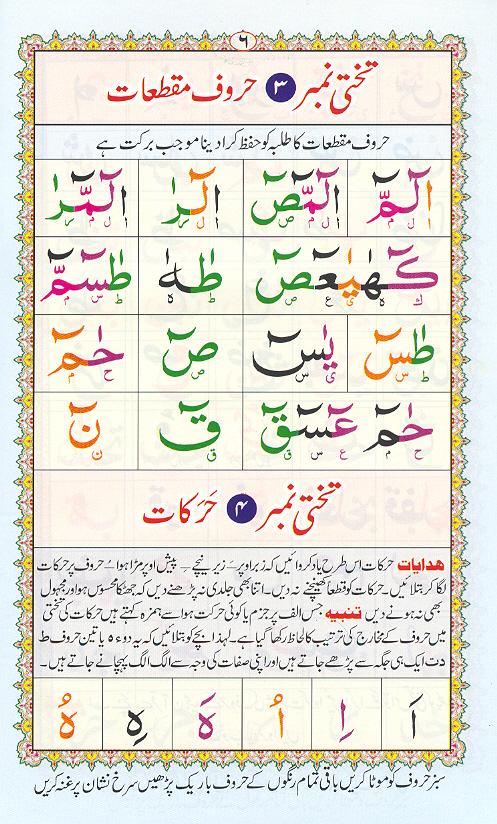 ٦
تختی نمبر ٣ حروف مقطعات
حروف مقطعات کا طلبہ کو حفظ کرا دینا موجب برکت ہے
الٓمّٓ الٓمّٓصٓ الٓرٰ الٓمّٓرٰ
ا ل م ا ل م ص ا ل ر ا ل م ر
كٓهٰيٰعٓصٓ طٰهٰ طٰسٓمّٓ
ك ه ي ع ص ط ه ط س م
طٰسٓ يٰسٓ صٓ حٰمٓ
ط س ي س ص ح م
حٰمٓ عٓسٓقٓ قٓ نٓ
ح م ع س ق ق ن
تختی نمبر ٤ حَرَکات
ھدایات حرکات اس طرح یاد کروائیں کہ زبر اوپر ـَ زیر نیچے ـِ پیش اوپر مڑا ہوا ـُ حروف پر حرکات
لگا کر بتلائیں۔ حرکات کو قطعاً کھینچنے نہ دیں۔ اتنا بھی جلدی نہ پڑھنے دیں کہ جھٹکا محسوس ہو اور مجہول
بھی نہ ہونے دیں تنبیہ جس الف پر جزم یا کوئی حرکت ہو اسے ہمزہ کہتے ہیں حرکات کی تختی
میں حروف کے مخارج کی ترتیب کا لحاظ رکھا گیا ہے۔ لہذا بچے کو بتلائیں کہ یہ دو ء ہ یا تین حروف ط
د ت ایک ہی جگہ سے پڑھے جاتے ہیں اور اپنی صفات کی وجہ سے الگ الگ پہچانے جاتے ہیں۔
اَ اِ اُ هَ هِ هُ
سبز حروف کو موٹا کریں باقی تمام رنگوں کے حروف باریک پڑھیں سرخ نشان پر غنہ کریں